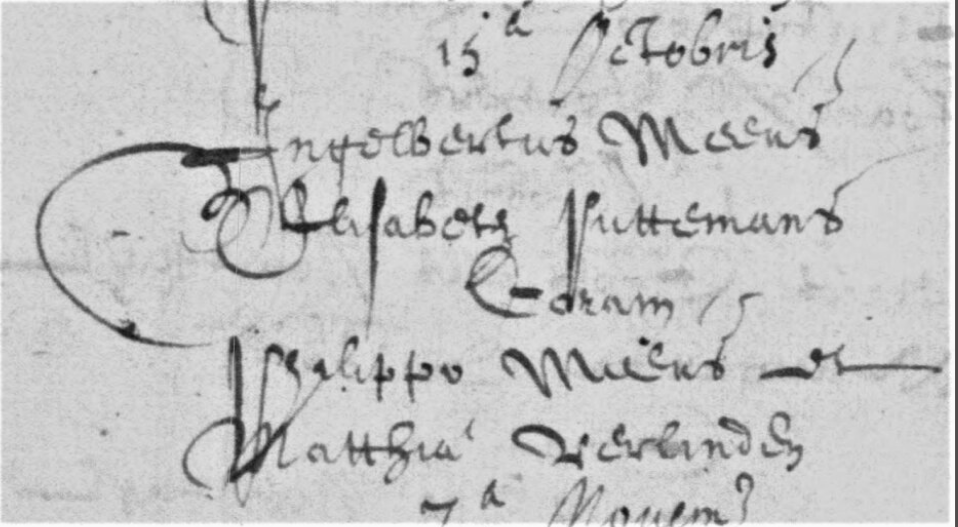 15ᵃ Octobris
Ingelbertus Meeus
Elisabeth Puttemans
Coram
Philippo Meeus et
Matthia Verlinden
7ᵃ Novem